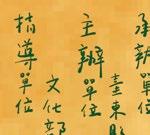 承辦
臺東縣
主辦單位
文化部
指導單位